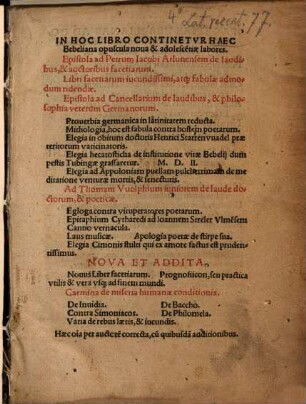 4 Lat. recent. 77.
IN HOC LIBRO CONTINETVR HAEC
Bebeliana opuscula noua & adolescētiæ labores.
Epistola ad Petrum Iacobi Arlunensem de laudibus, & auctoribus facetiarum.
Libri facetiarum iucundissimi, atq; fabulæ admodum ridendæ.
Epistola ad Cancellarium de laudibus, & philosophia veterum Germanorum.
Prouerbia germanica in latinitatem reducta.
Mithologia, hoc est fabula contra hostem poetarum.
Elegia in obitum doctoris Henrici Starrenvuadel præteritorum vaticinatoris.
Elegia hecatosticha de institutione vitæ Bebelij dum pestis Tubingæ grassaretur. M. D. II.
Elegia ad Appoloniam puellam pulcerrimam de meditatione venturæ mortis, & senectutis.
Ad Thomam Vuolphium iuniorem de laude doctorum, & poeticæ.
Egloga contra vituperatores poetarum.
Epitaphium Cytharedi ad Ioannem Streler Vlmēsem
Cantio vernacula.
Laus musicæ. Apologia poetæ de stirpe sua.
Elegia Cimonis stulti qui ex amore factus est prudentissimus.
NOVA ET ADDITA.
Nouus Liber facetiarum. Prognosticon, seu practica vtilis & vera vsq; ad finem mundi.
Carmina de miseria humanæ conditionis.
De Inuidia. De Baccho.
Contra Simoniacos. De Philomela.
Varia de rebus lætis, & iucundis.
Hæc oīa per auctorē correcta, cū quibusdā additionibus.